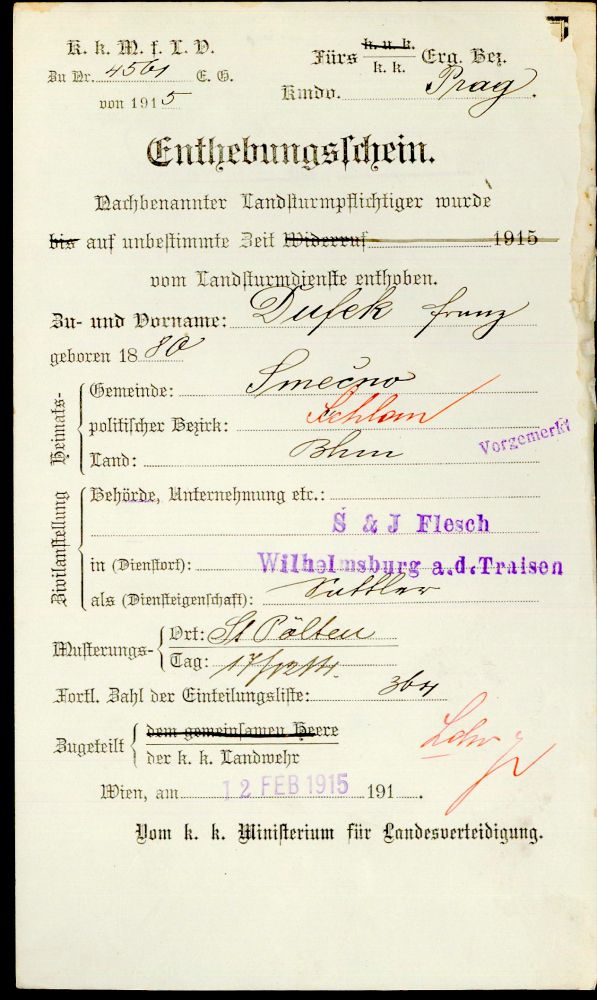 K. k. M. f. L. V.
Zu Nr. 4561 E. G.
von 1915
Fürs k. u. k. Erg. Bez.
k. k.
Kmdo. Prag.
Enthebungsschein.
Nachbenannter Landsturmpflichtiger wurde
bis auf unbestimmte Zeit Widerruf 1915
vom Landsturmdienste enthoben.
Zu- und Vorname: Dufek Franz
geboren 1880
Heimats-
Gemeinde: Smečno
politischer Bezirk: Schlan
Land: Bhm
Vorgemerkt
Zivilanstellung
Behörde, Unternehmung etc.:
S & J Flesch
in (Dienstort): Wilhelmsburg a.d. Traisen
als (Diensteigenschaft): Sattler
Musterungs-
Ort: St Pölten
Tag: 17/12 14.
Fortl. Zahl der Einteilungsliste: 364
Zugeteilt
dem gemeinsamen Heere
der k. k. Landwehr
Ldw
Wien, am 12 FEB 1915 191
Vom k. k. Ministerium für Landesverteidigung.